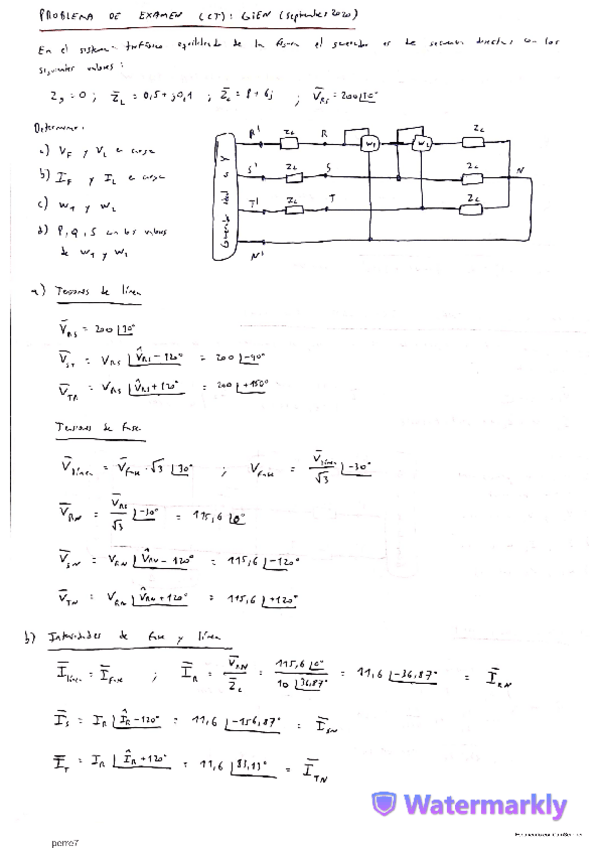 PROBLEMA DE EXAMEN (CT): GIEN (Septiembre 2020)
En el sistema trifásico equilibrado de la figura el generador es de secuencia directa con los
siguientes valores:
Zg = 0 ; Z̄L = 0,5 + j0,1 ; Z̄c = 8 + 6j ; V̄RS = 200|30°
Determinar:
a) VF y VL en carga
b) IF y IL en carga
c) W1 y W2
d) P, Q, S con los valores
de W1 y W2
Generador ideal en Y
R' ZL R W1 W2 Zc
S' ZL S Zc N
T' ZL T Zc
N'
a) Tensiones de línea
V̄RS = 200|30°
V̄ST = VRS |V̂RS - 120° = 200 |-90°
V̄TR = VRS |V̂RS + 120° = 200 |+150°
Tensiones de fase
V̄línea = V̄fase · √3 |30° ; Vfase = V̄línea/√3 |-30°
V̄RN = V̄RS/√3 |-30° = 115,6 |0°
V̄SN = VRN |V̂RN - 120° = 115,6 |-120°
V̄TN = VRN |V̂RN + 120° = 115,6 |+120°
b) Intensidades de fase y línea
Ī línea = Ī fase ; ĪR = V̄RN/Z̄c = 115,6 |0°/10 |36,87° = 11,6 |-36,87° = ĪRN
ĪS = IR |ÎR - 120° = 11,6 |-156,87° = ĪSN
ĪT = IR |ÎR + 120° = 11,6 |83,13° = ĪTN
Watermarkly
perre7